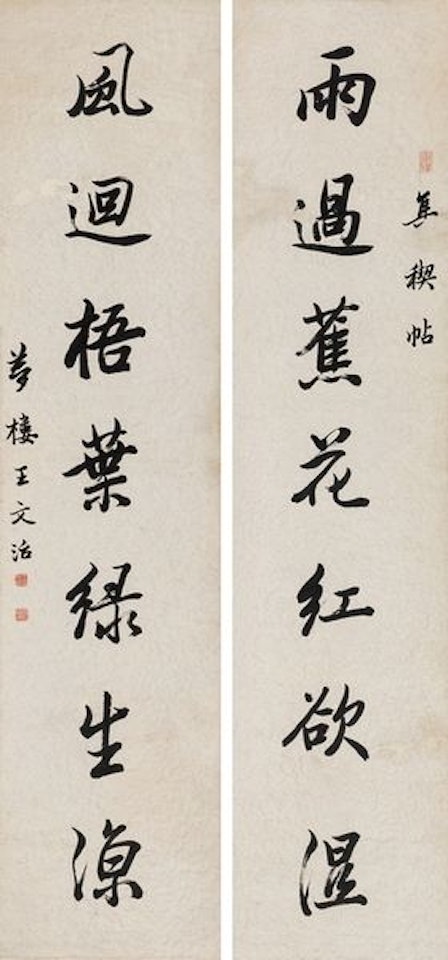 集禊帖
雨過蕉花紅欲湿
風迴梧葉緑生涼
夢樓王文治